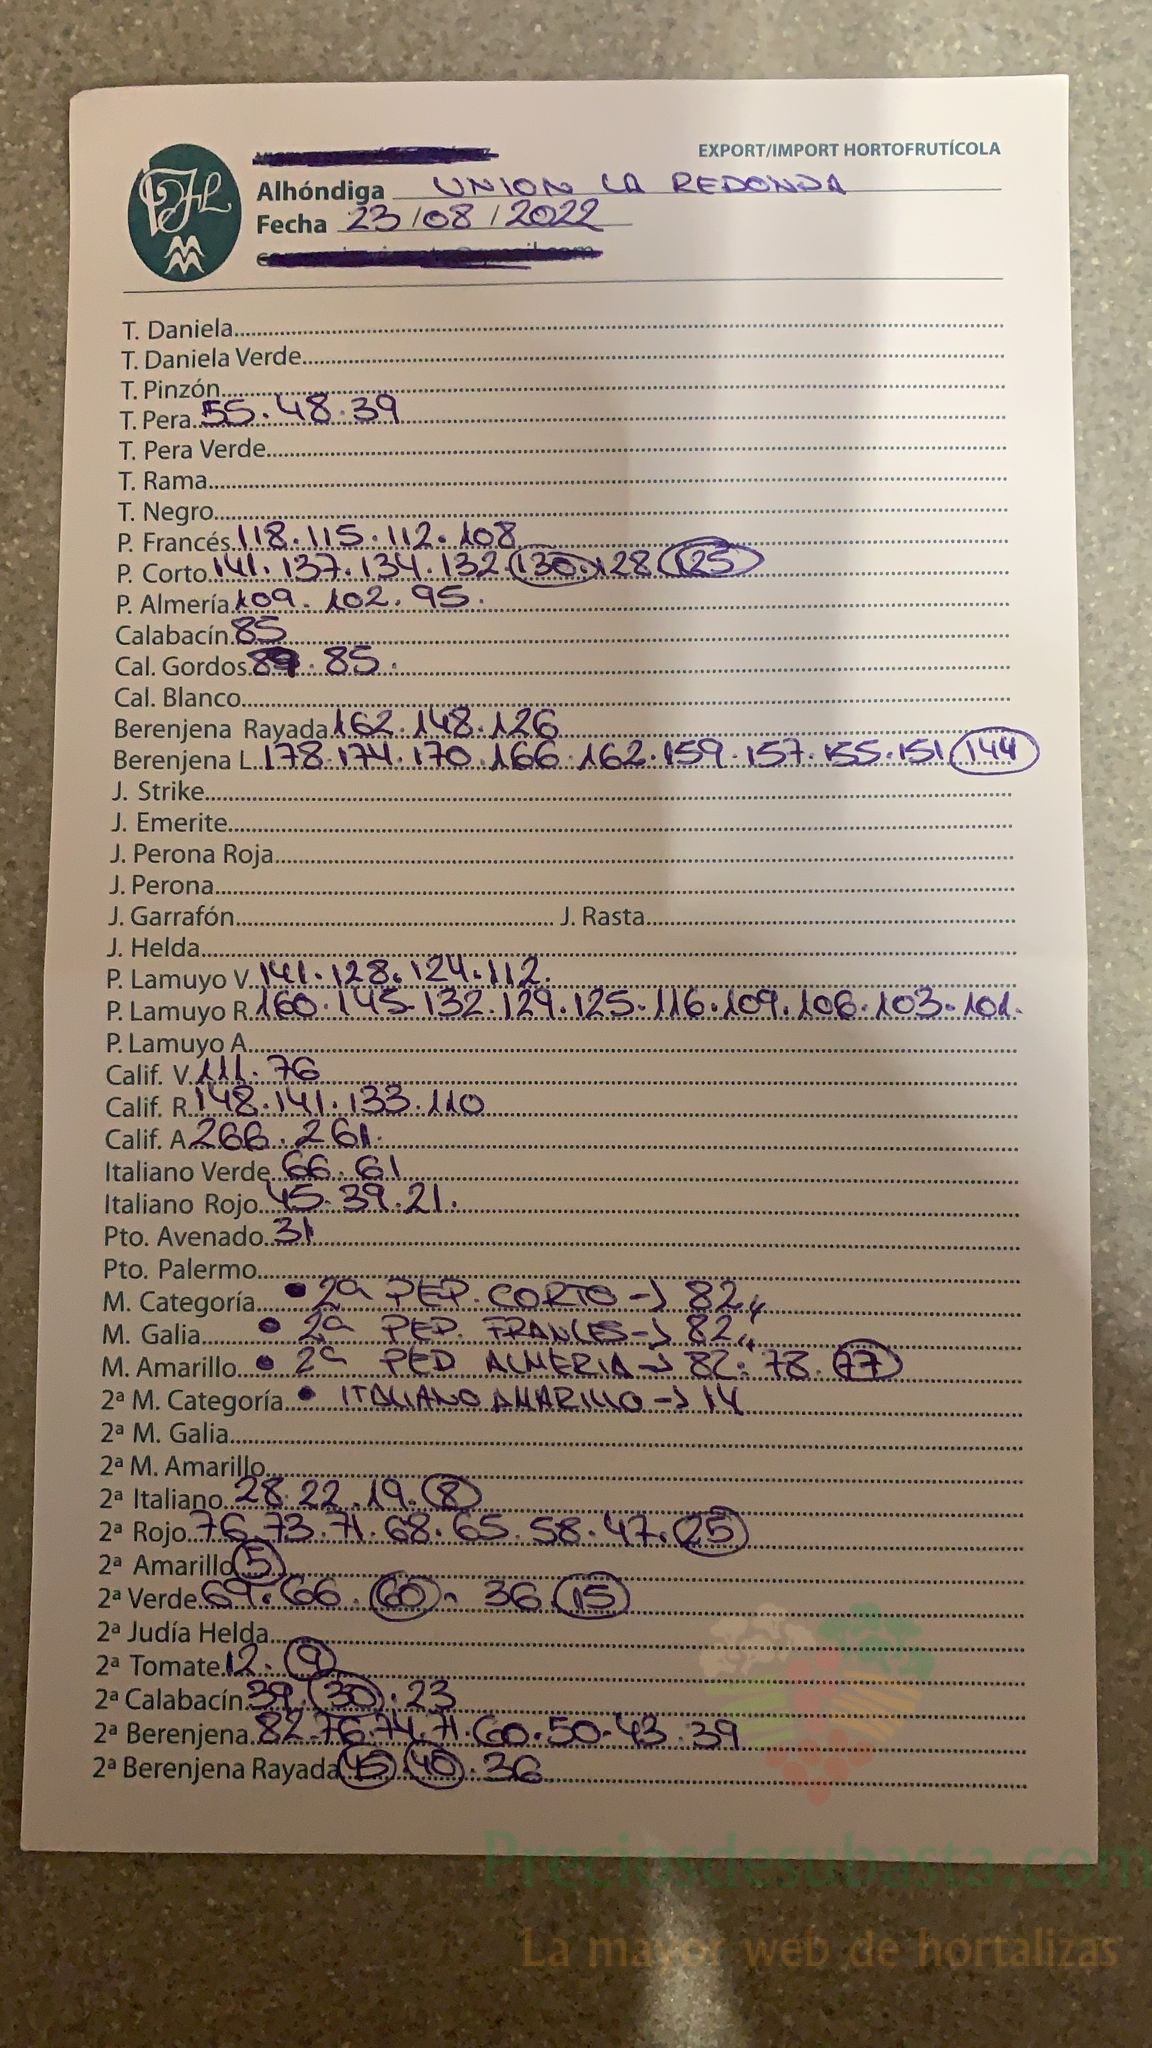 EXPORT/IMPORT HORTOFRUTÍCOLA
Alhóndiga UNION LA REDONDA
Fecha 23/08/2022
T. Daniela
T. Daniela Verde
T. Pinzón
T. Pera 55.48.39
T. Pera Verde
T. Rama
T. Negro
P. Francés 118.115.112.108
P. Corto 141.137.134.132.130.128.125
P. Almería 109.102.95.
Calabacín 85
Cal. Gordos 89.85.
Cal. Blanco
Berenjena Rayada 162.148.126
Berenjena L. 178.174.170.166.162.159.157.155.151.144
J. Strike
J. Emerite
J. Perona Roja
J. Perona
J. Garrafón J. Rasta
J. Helda
P. Lamuyo V. 141.128.124.112.
P. Lamuyo R. 160.145.132.129.125.116.109.106.103.101.
P. Lamuyo A.
Calif. V. 111.76
Calif. R. 148.141.133.110
Calif. A. 266.261.
Italiano Verde 66.61
Italiano Rojo 45.39.21.
Pto. Avenado 31
Pto. Palermo
M. Categoría • 2ª PEP. CORTO → 82
M. Galia • 2ª PEP. FRANCES → 82
M. Amarillo • 2ª PEP ALMERIA → 82.78.77
2ª M. Categoría • ITALIANO AMARILLO → 14
2ª M. Galia
2ª M. Amarillo
2ª Italiano 28.22.19.8
2ª Rojo 76.73.71.68.65.58.47.25
2ª Amarillo 5
2ª Verde 69.66.60.36.15
2ª Judía Helda
2ª Tomate 12.9
2ª Calabacín 39.30.23
2ª Berenjena 82.76.74.71.60.50.43.39
2ª Berenjena Rayada 45.40.36
Preciosdesubasta.com
La mayor web de hortalizas